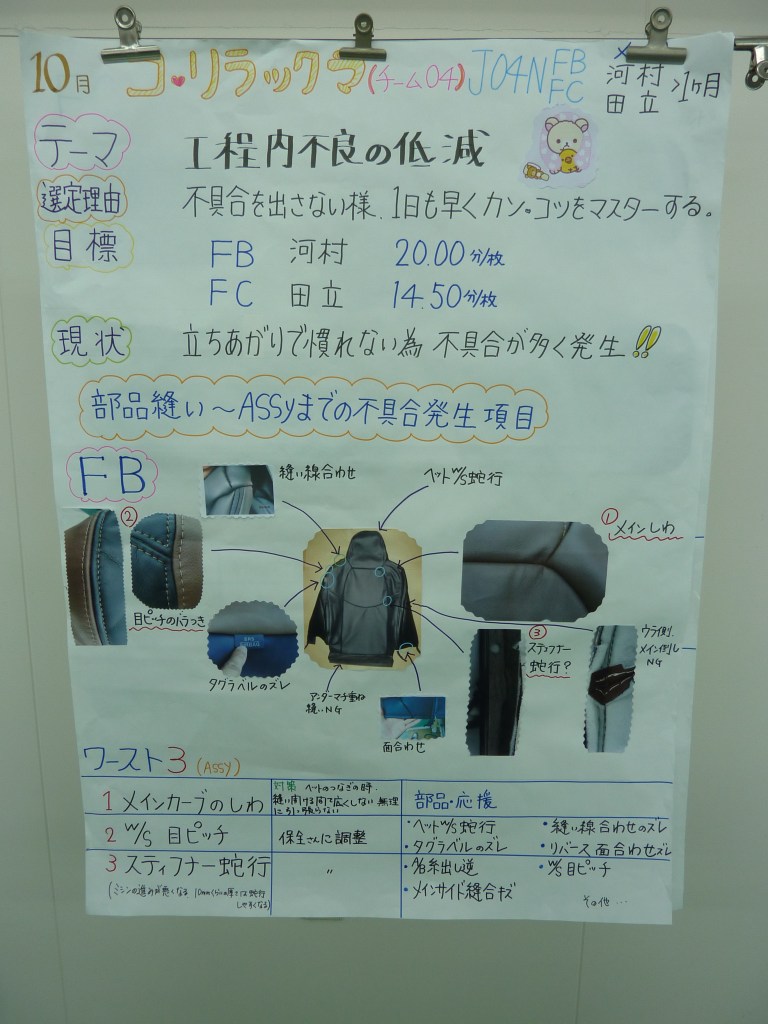 10月 コ・リラックマ (チーム04) J04N FB FC 河村 田立 >1ヶ月
テーマ 工程内不良の低減
選定理由 不具合を出さない様、1日も早くカン。コツをマスターする。
目標 FB 河村 20.00分/枚
FC 田立 14.50分/枚
現状 立ちあがりで慣れない為 不具合が多く発生!!
部品縫い～ASSyまでの不具合発生項目
FB
縫い線合わせ
ヘットW/S蛇行
① メインしわ
②
目ピッチのバラつき
タグラベルのズレ
アンダーマチ重ね
縫いNG
面合わせ
③
スティフナー
蛇行?
ウラ側、
メイン倒し
NG
ワースト3 (ASSY)
1 メインカーブのしわ
対策 ヘットのつなぎの時、
縫い開ける間で広くしない
2 W/S 目ピッチ
保全さんに調整
3 スティフナー蛇行
〃
部品・応援
・ヘットW/S蛇行
・縫い線合わせのズレ
・タグラベルのズレ
・リバース面合わせズレ
糸出し逆
目ピッチ
・メインサイド縫合キズ
その他…